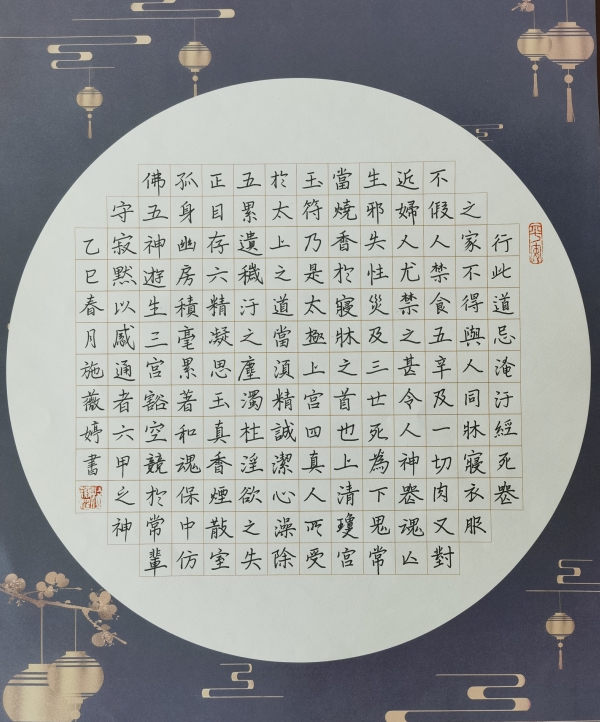 行此道忌淹汙經死喪
之家不得與人同牀寢衣服
不假人禁食五辛及一切肉又對
近婦人尤禁之甚令人神喪魂亾
生邪失性災及三世死為下鬼常
當燒香於寢牀之首也上清瓊宮
玉符乃是太極上宮四真人所受
於太上之道當須精誠潔心澡除
五累遺穢汙之塵濁杜淫欲之失
正目存六精凝思玉真香煙散室
孤身幽房積毫累著和魂保中仿
佛五神遊生三宮豁空競於常輩
守寂默以感通者六甲之神
乙巳春月施薇婷書